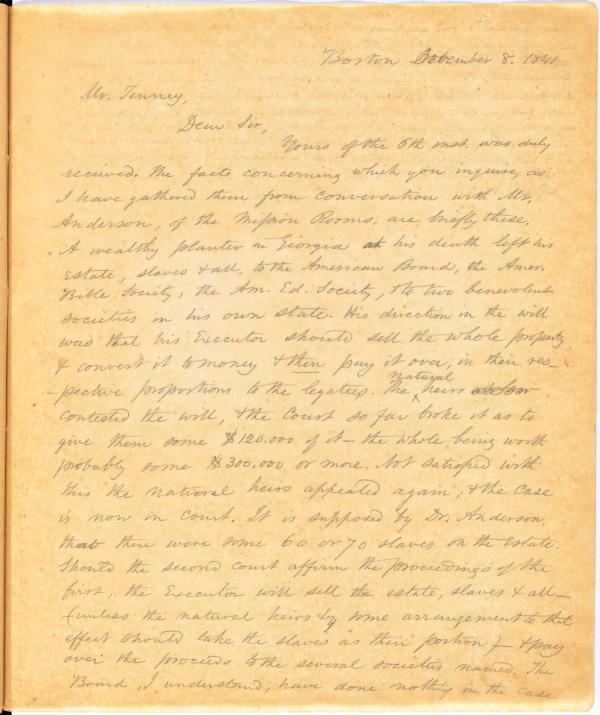 Boston November 8. 1841
Mr. Tenney,
Dear Sir,
Yours of the 6th inst. was duly
received. The facts concerning which you inquire, as
I have gathered them from conversation with Mr.
Anderson, of the Mission Rooms, are briefly these.
A wealthy planter in Georgia at his death left his
Estate, slaves & all, to the American Board, the Amer.
Bible Society, the Am. Ed. Society, & to two benevolent
societies in his own state. His direction in the will
was that his Executor should sell the whole property
& convert it to money & then pay it over, in their res-
-pective proportions to the legatees. The natural heirs
contested the will, & the Court so far broke it as to
give them some $120.000 of it – the whole being worth
probably some $300.000 or more. Not satisfied with
this the national heirs appealed again, & the case
is now in court. It is supposed by Dr. Anderson,
that there were some 60 or 70 slaves on the Estate.
Should the second court affirm the proceedings of the
first, the Executor will sell the estate, slaves & all –
(unless the natural heirs by some arrangement to that
effect should take the slaves as their portion) – & pay
over the proceeds to the several societies named. The
Board, I understand, have done nothing in the case